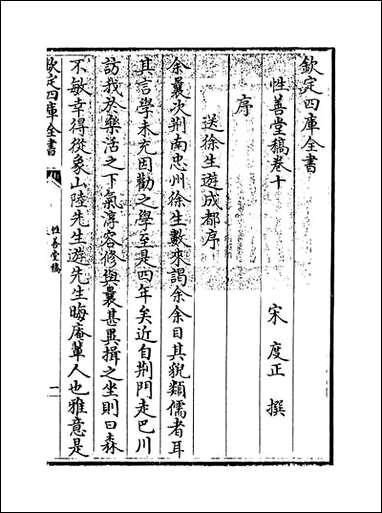 欽定四庫全書
性善堂稿卷十
宋 度正 撰
序
送徐生遊成都序
余曩次荆南忠州徐生數來謁余余目其貌類儒者耳
其言學未充因勸之學至是四年矣近自荆門走巴川
訪我於樂活之下氣淳容修與曩甚異揖之坐則曰森
不敏幸得從象山陸先生遊先生晦庵輩人也雅意是
欽定四庫全書
性善堂稿
一